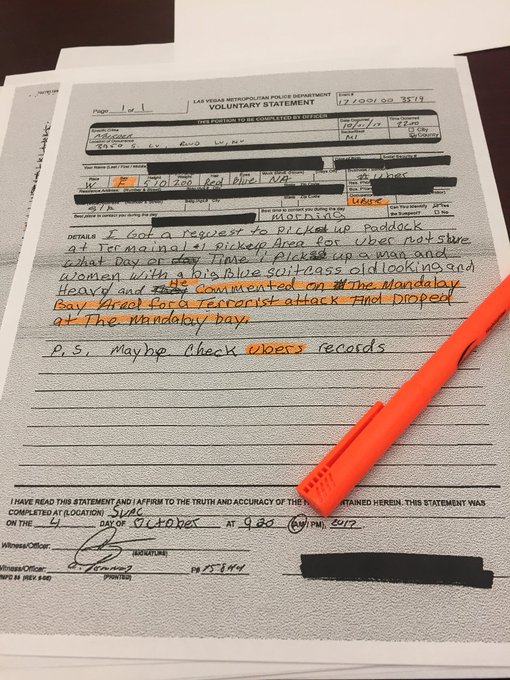 LAS VEGAS METROPOLITAN POLICE DEPARTMENT
VOLUNTARY STATEMENT
Page 1 of 1
Event #
171001003519
THIS PORTION TO BE COMPLETED BY OFFICER
Specific Crime
Murder
Date Occurred
10/01/17
Time Occurred
2200
Location of Occurrence
3950 S LV. BLVD LV, NV
Sector/Beat
M1
City
County
Your Name (Last / First / Middle)
Date of Birth
Social Security #
Race
Height
Eyes
W F 510 200 Red Blue NA
Uber
Residence Address
Bus. Phone
Uber
Best place to contact you during the day
Best time to contact you during the day
morning
Can You Identify the Suspect?
Yes
No
DETAILS I Got a request to Picked up Paddock
at Termainal #1 Pickup Area for Uber not sure
what Day or Time i Picked up a man and
women with a big Blue suitcass old looking and
Heavy and He Commented on The Mandalay
Bay Areaf for a Terrorist attack And Droped
at The Mandalay bay.
P.S. Maybe Check Ubers records
I HAVE READ THIS STATEMENT AND I AFFIRM TO THE TRUTH AND ACCURACY OF THE CONTAINED HEREIN. THIS STATEMENT WAS
COMPLETED AT (LOCATION) SVAC
ON THE 4 DAY OF October AT 920 (AM / PM), 2017
Witness/Officer:
(SIGNATURE)
Witness/Officer:
P#
(PRINTED)